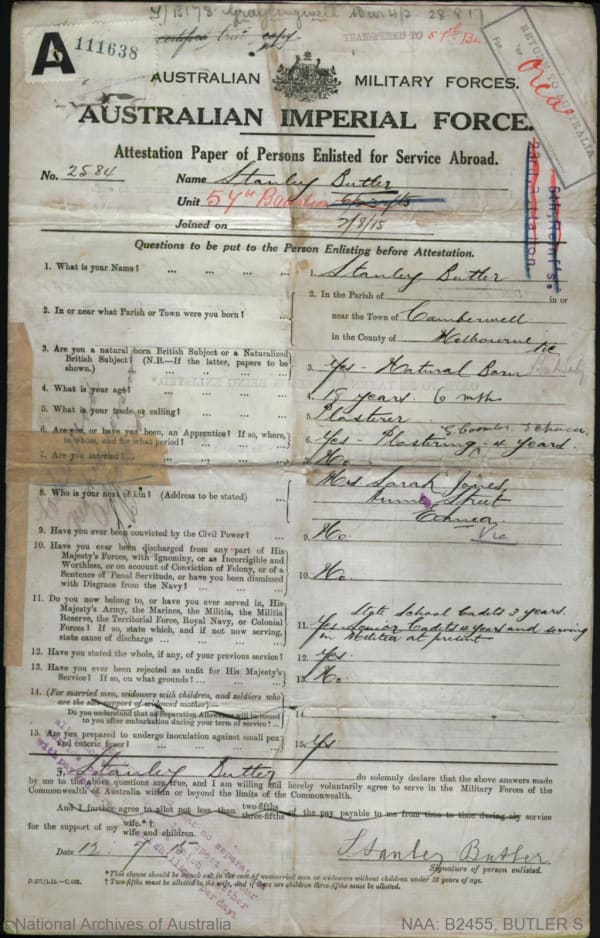 F/B178 Graylingwell War 4/3 28.8.17
certified true copy
TRANSFERRED TO 57th Bn
RETURN TO AUSTRALIA
For
Per
A 111638
AUSTRALIAN MILITARY FORCES.
AUSTRALIAN IMPERIAL FORCE.
Attestation Paper of Persons Enlisted for Service Abroad.
No. 2584 Name Stanley Butler
Unit 57th Battalion
Joined on 2/8/15
Questions to be put to the Person Enlisting before Attestation.
1. What is your Name? ... ... ... ... 1. Stanley Butler
2. In or near what Parish or Town were you born? ... 2. In the Parish of in or
near the Town of Camberwell
in the County of Melbourne Vic
3. Are you a natural born British Subject or a Naturalized British Subject? (N.B.—If the latter, papers to be shown.) 3. Yes - Natural Born
4. What is your age? 4. 19 years. 6 mths
5. What is your trade or calling? 5. Plasterer
6. Are you, or have you been, an Apprentice? If so, where, to whom, and for what period? 6. Yes - Plastering - 4 years. G. Coombs. Echuca
7. Are you married? 7. No
8. Who is your next of kin? (Address to be stated) ... 8. Mrs Sarah Jones,
Street
Echuca.
Vic
9. Have you ever been convicted by the Civil Power? ... 9. No.
10. Have you ever been discharged from any part of His Majesty's Forces, with Ignominy, or as Incorrigible and Worthless, or on account of Conviction of Felony, or of a Sentence of Penal Servitude, or have you been dismissed with Disgrace from the Navy? 10. No.
11. Do you now belong to, or have you ever served in, His Majesty's Army, the Marines, the Militia, the Militia Reserve, the Territorial Force, Royal Navy, or Colonial Forces? If so, state which, and if not now serving, state cause of discharge 11. State School Cadets 3 years.
Yes Senior Cadets 4 years and serving
in Militia at present
12. Have you stated the whole, if any, of your previous service? 12. Yes.
13. Have you ever been rejected as unfit for His Majesty's Service? If so, on what grounds? 13. No.
14. (For married men, widowers with children, and soldiers who are the sole support of widowed mother)—
Do you understand that no Separation Allowance will be issued to you after embarkation during your term of service? 14.
15. Are you prepared to undergo inoculation against small pox and enteric fever? 15. Yes
I, Stanley Butler do solemnly declare that the above answers made
by me to the above questions are true, and I am willing and hereby voluntarily agree to serve in the Military Forces of the
Commonwealth of Australia within or beyond the limits of the Commonwealth.
And I further agree to allot not less than two-fifths three-fifths of the pay payable to me from time to time during my service
for the support of my wife.*† wife and children.
Date 12. 7 15 Stanley Butler.
Signature of person enlisted.
*This clause should be struck out in the case of unmarried men or widowers without children under 18 years of age.
† Two-fifths must be allotted to the wife, and if there are children three-fifths must be allotted.
National Archives of Australia
NAA: B2455, BUTLER S